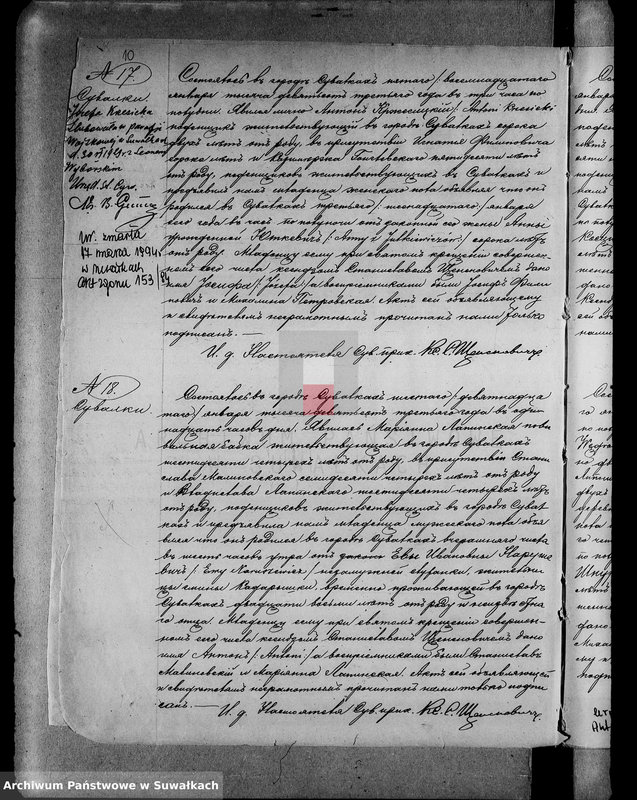 10
№ 17.
Сувалки.
Józefa Krzesicka
ślubowała w parafji
Wojskowej w Suwałkach
z Leonem
Wyborskim
Urzęd. St. Cyw.
Ur. zmarła
17 marca 1994 r.
w Suwałkach
akt zgonu 153/94
Состоялось въ городѣ Сувалкахъ пятаго /восемнадцатаго/
января тысяча девятьсотъ третьяго года въ три часа по
полудни. Явился лично Антонъ Кржесицкій /Antoni Krzesicki/
поденщикъ жительствующій въ городѣ Сувалкахъ сорока
двухъ лѣтъ отъ роду, въ присутствіи Игнатія Филиповича
сорока лѣтъ и пятидесяти лѣтъ
отъ роду, поденщиковъ жительствующихъ въ Сувалкахъ и
предъявилъ намъ младенца женскаго пола объявляя что онъ
родился въ Сувалкахъ третьяго /шестнадцатаго/ января
сего года въ часъ по полуночи отъ законной его жены Анны
урожденной Юткевичъ /Anny z Jutkiewiczów/ сорока лѣтъ
отъ роду. Младенцу сему при святомъ крещеніи совершен-
номъ сего числа ксендзомъ Станиславомъ Щенсновичемъ дано
имя Іосифа /Józefa/ а воспріемниками были Іосифъ Фили-
повичъ и Михалина Петровская. Актъ сей объявляющему
и свидѣтелямъ неграмотнымъ прочитанъ нами только
подписанъ. —
И. д. Настоятеля Сув. прих. Кс. С. Щенсновичъ
№ 18.
Сувалки.
Состоялось въ городѣ Сувалкахъ шестаго /девятнадца
таго/ января тысяча девятьсотъ третьяго года въ один
надцать часовъ дня. Явилась Маріанна Лапинская пови
вальная бабка жительствующая въ городѣ Сувалкахъ
шестидесяти четырехъ лѣтъ отъ роду, въ присутствіи Стани
слава Малиновскаго семидесяти четырехъ лѣтъ отъ роду
и Владислава Лапинскаго шестидесяти четырехъ лѣтъ
отъ роду, поденщиковъ жительствующихъ въ городѣ Сувал
кахъ и предъявила намъ младенца мужескаго пола объя
вляя что онъ родился въ городѣ Сувалкахъ вчерашняго числа
въ шесть часовъ утра отъ Евы Ивановны Наруше
вичъ незамужней
цы гмины Кадаришки, временно проживающей въ городѣ
Сувалкахъ двадцати восьми лѣтъ отъ роду и неизвѣстна
го отца. Младенцу сему при святомъ крещеніи совершен-
номъ сего числа ксендзомъ Станиславомъ Щенсновичемъ дано
имя Антонъ /Antoni/ а воспріемниками были Станиславъ
Малиновскій и Маріанна Лапинская. Актъ сей объявляющей
и свидѣтелямъ неграмотнымъ прочитанъ нами только подпи
санъ. —
И. д. Настоятеля Сув. прих. Кс. С. Щенсновичъ
Archiwum Państwowe w Suwałkach